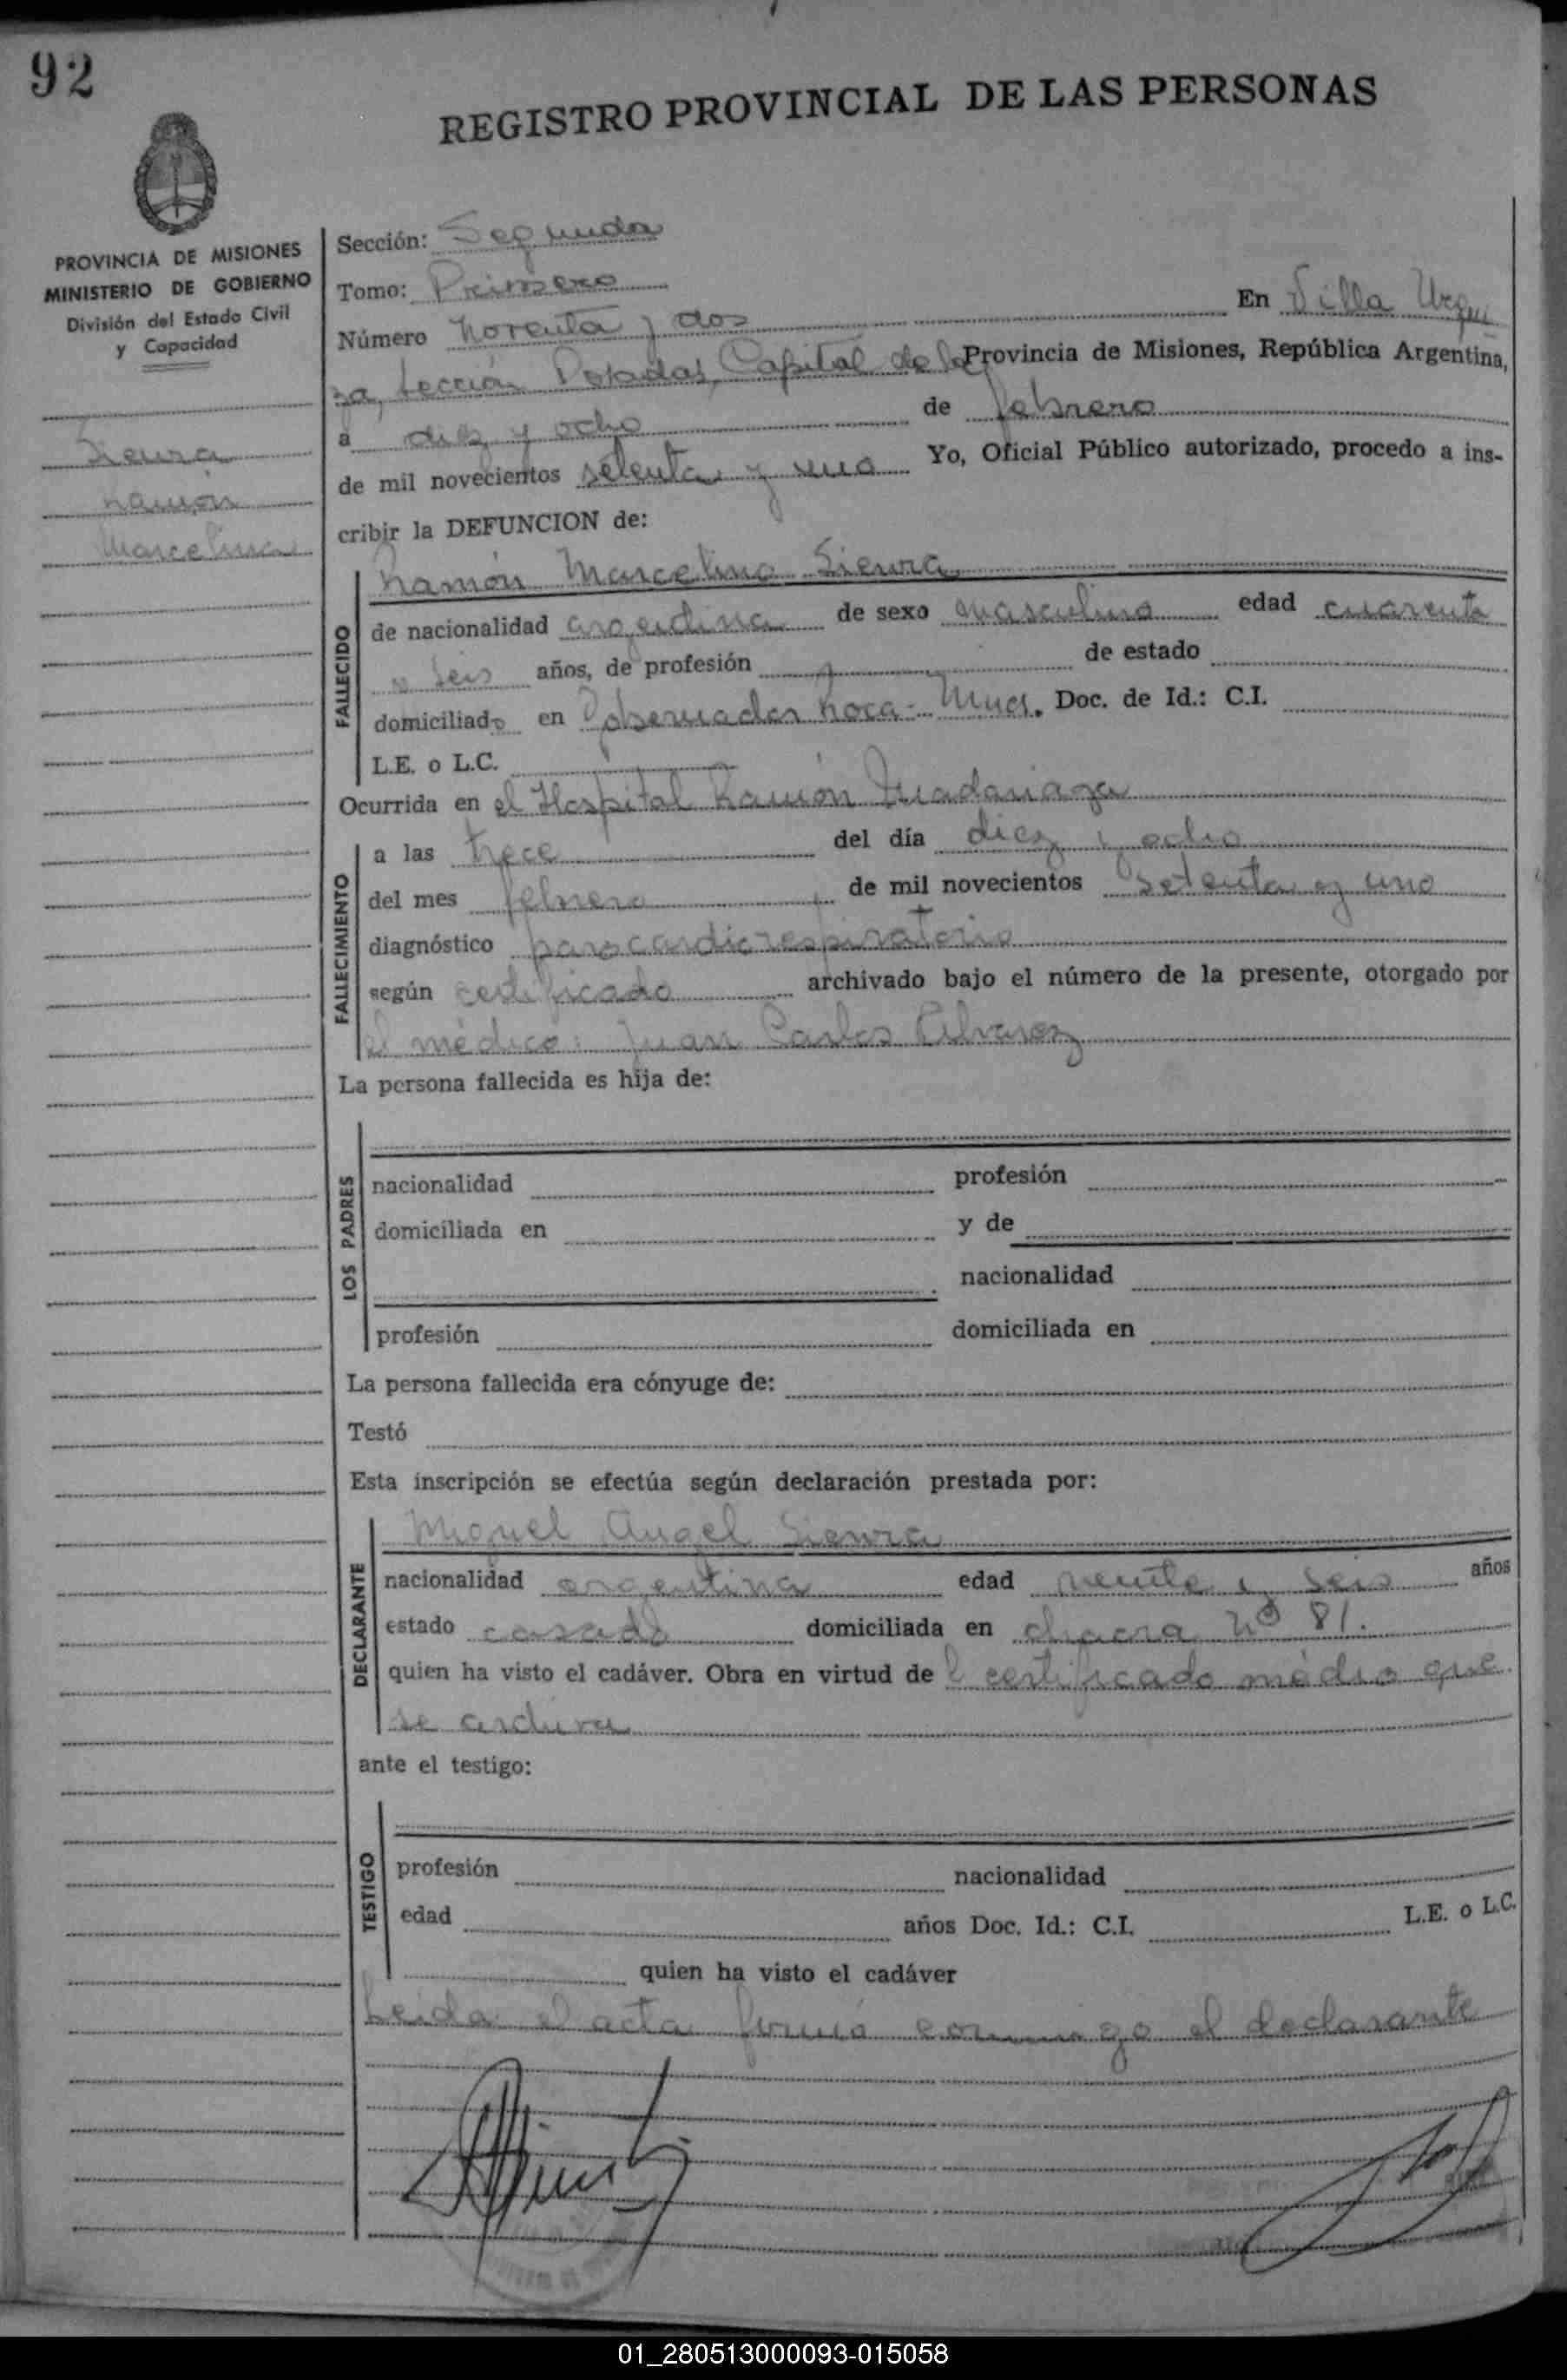 92
REGISTRO PROVINCIAL DE LAS PERSONAS
PROVINCIA DE MISIONES
MINISTERIO DE GOBIERNO
División del Estado Civil
y Capacidad
Sieura
Ramón
Marcelino
Sección: Segunda
Tomo: Primero
Número Noventa y dos En Villa Urqui
za, Sección Posadas, Capital de la Provincia de Misiones, República Argentina,
a diez y ocho de febrero
de mil novecientos setenta y uno Yo, Oficial Público autorizado, procedo a ins-
cribir la DEFUNCION de:
Ramón Marcelino Sieura
FALLECIDO
de nacionalidad argentina de sexo masculino edad cuarenta
y seis años, de profesión de estado
domiciliado en Gobernador Roca - Mnes. Doc. de Id.: C.I.
L.E. o L.C.
Ocurrida en el Hospital Ramón Madariaga
FALLECIMIENTO
a las trece del día diez y ocho
del mes febrero de mil novecientos setenta y uno
diagnóstico paro cardiorespiratorio
según certificado archivado bajo el número de la presente, otorgado por
el médico: Juan Carlos Alvarez
La persona fallecida es hija de:
LOS PADRES
nacionalidad profesión
domiciliada en y de
nacionalidad
profesión domiciliada en
La persona fallecida era cónyuge de:
Testó
Esta inscripción se efectúa según declaración prestada por:
Miguel Angel Sieura
DECLARANTE
nacionalidad argentina edad veinte y seis años
estado casado domiciliada en chacra Nº 81.
quien ha visto el cadáver. Obra en virtud de l certificado médico que
se archiva
ante el testigo:
TESTIGO
profesión nacionalidad
edad años Doc. Id.: C.I. L.E. o L.C.
quien ha visto el cadáver
Leida el acta firmó conmigo el declarante
01_280513000093-015058